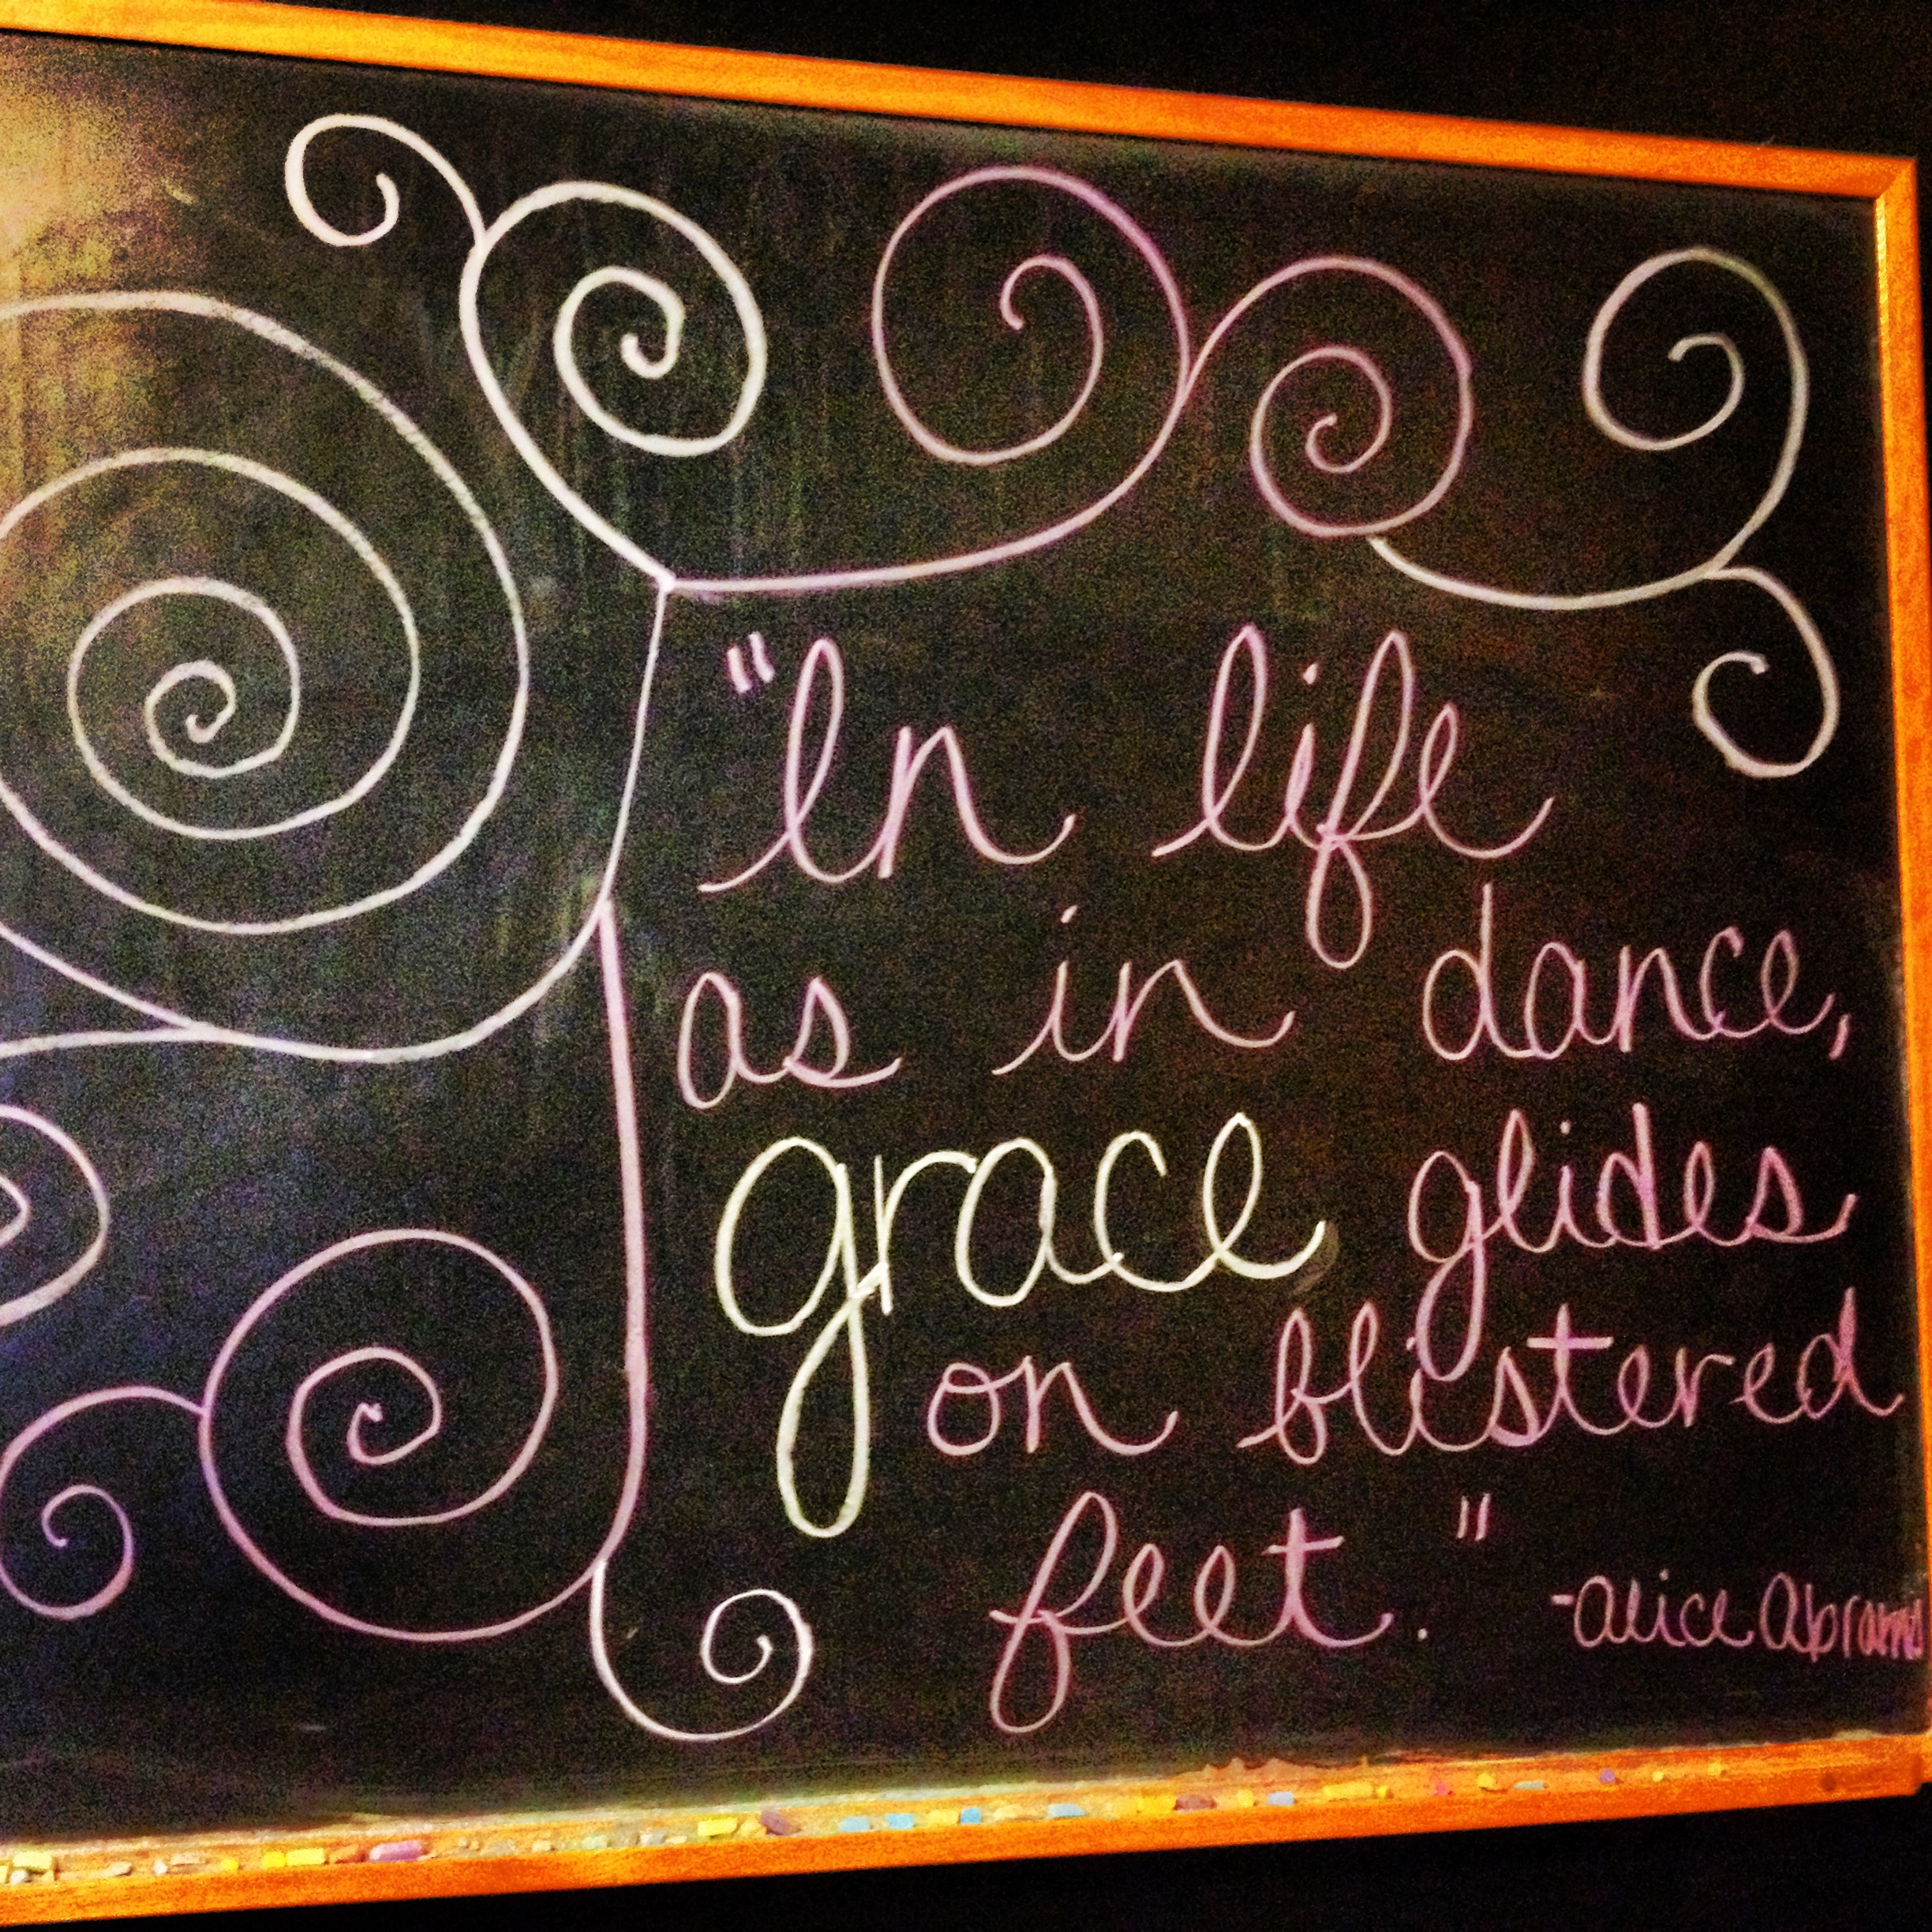 "In life
as in dance,
grace glides
on blistered
feet."
-Alice Abrams